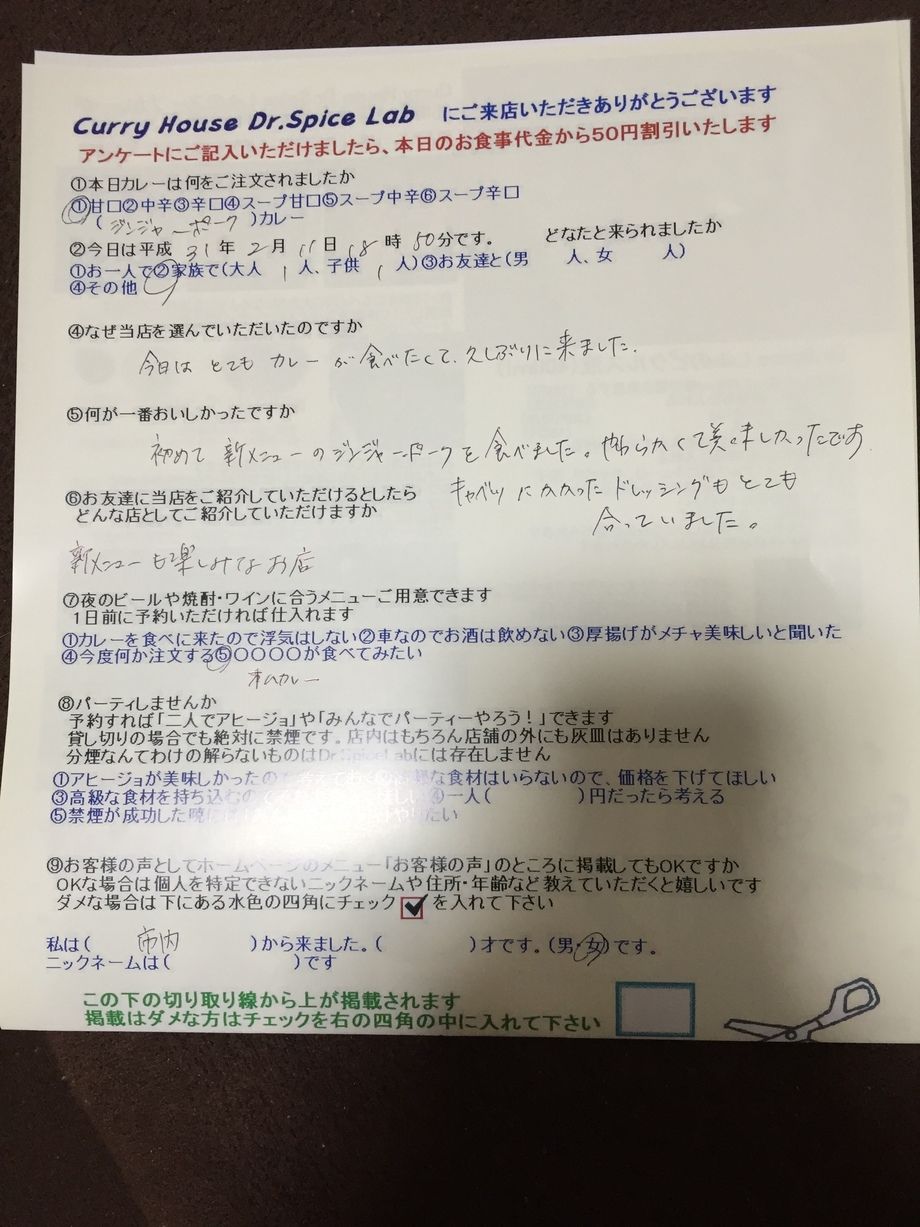 Curry House Dr.Spice Lab にご来店いただきありがとうございます
アンケートにご記入いただけましたら、本日のお食事代金から50円割引いたします
①本日カレーは何をご注文されましたか
①甘口②中辛③辛口④スープ甘口⑤スープ中辛⑥スープ辛口
(ジンジャーポーク)カレー
②今日は平成 31年 2月 11日 18時 50分です。 どなたと来られましたか
①お一人で②家族で(大人 1人、子供 1人)③お友達と(男 人、女 人)
④その他
④なぜ当店を選んでいただいたのですか
今日は とても カレー が 食べたくて、久しぶりに来ました。
⑤何が一番おいしかったですか
初めて 新メニューのジンジャーポークを食べました。柔らかくて美味しかったです
キャベツにかかったドレッシングもとても
合っていました。
⑥お友達に当店をご紹介していただけるとしたら
どんな店としてご紹介していただけますか
新メニューも楽しみなお店
⑦夜のビールや焼酎・ワインに合うメニューご用意できます
1日前に予約いただければ仕入れます
①カレーを食べに来たので浮気はしない②車なのでお酒は飲めない③厚揚げがメチャ美味しいと聞いた
④今度何か注文する⑤〇〇〇〇が食べてみたい
カレー
⑧パーティしませんか
予約すれば「二人でアヒージョ」や「みんなでパーティーやろう!」できます
貸し切りの場合でも絶対に禁煙です。店内はもちろん店舗の外にも灰皿はありません
分煙なんてわけの解らないものはDr.SpiceLabには存在しません
①アヒージョが美味しかったので考えておく な食材はいらないので、価格を下げてほしい
③高級な食材を持ち込むので ④一人( )円だったら考える
⑤禁煙が成功した暁には やりたい
⑨お客様の声としてホームページのメニュー「お客様の声」のところに掲載してもOKですか
OKな場合は個人を特定できないニックネームや住所・年齢など教えていただくと嬉しいです
ダメな場合は下にある水色の四角にチェック を入れて下さい
私は( 市内 )から来ました。( )才です。(男・女)です。
ニックネームは( )です
この下の切り取り線から上が掲載されます
掲載はダメな方はチェックを右の四角の中に入れて下さい